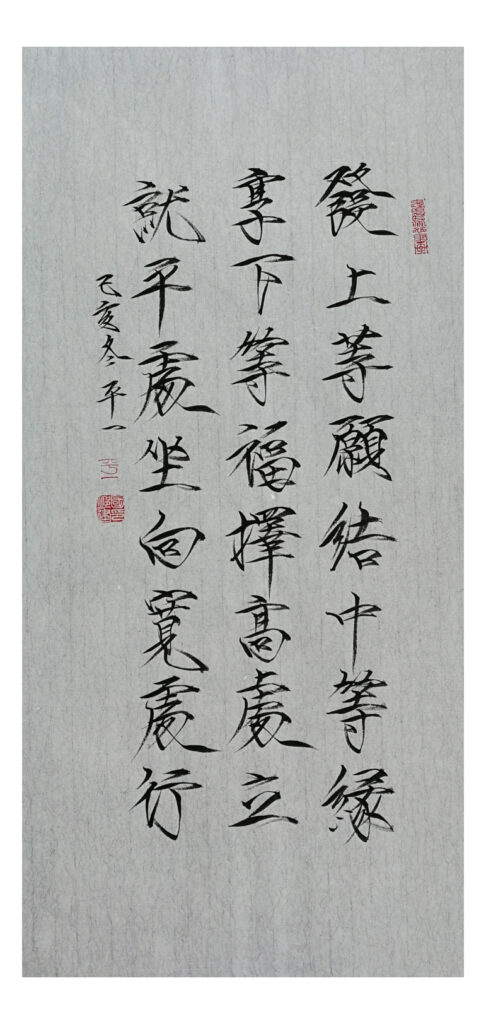 發上等願結中等緣
享下等福擇高處立
就平處坐向寬處行
己亥冬平一